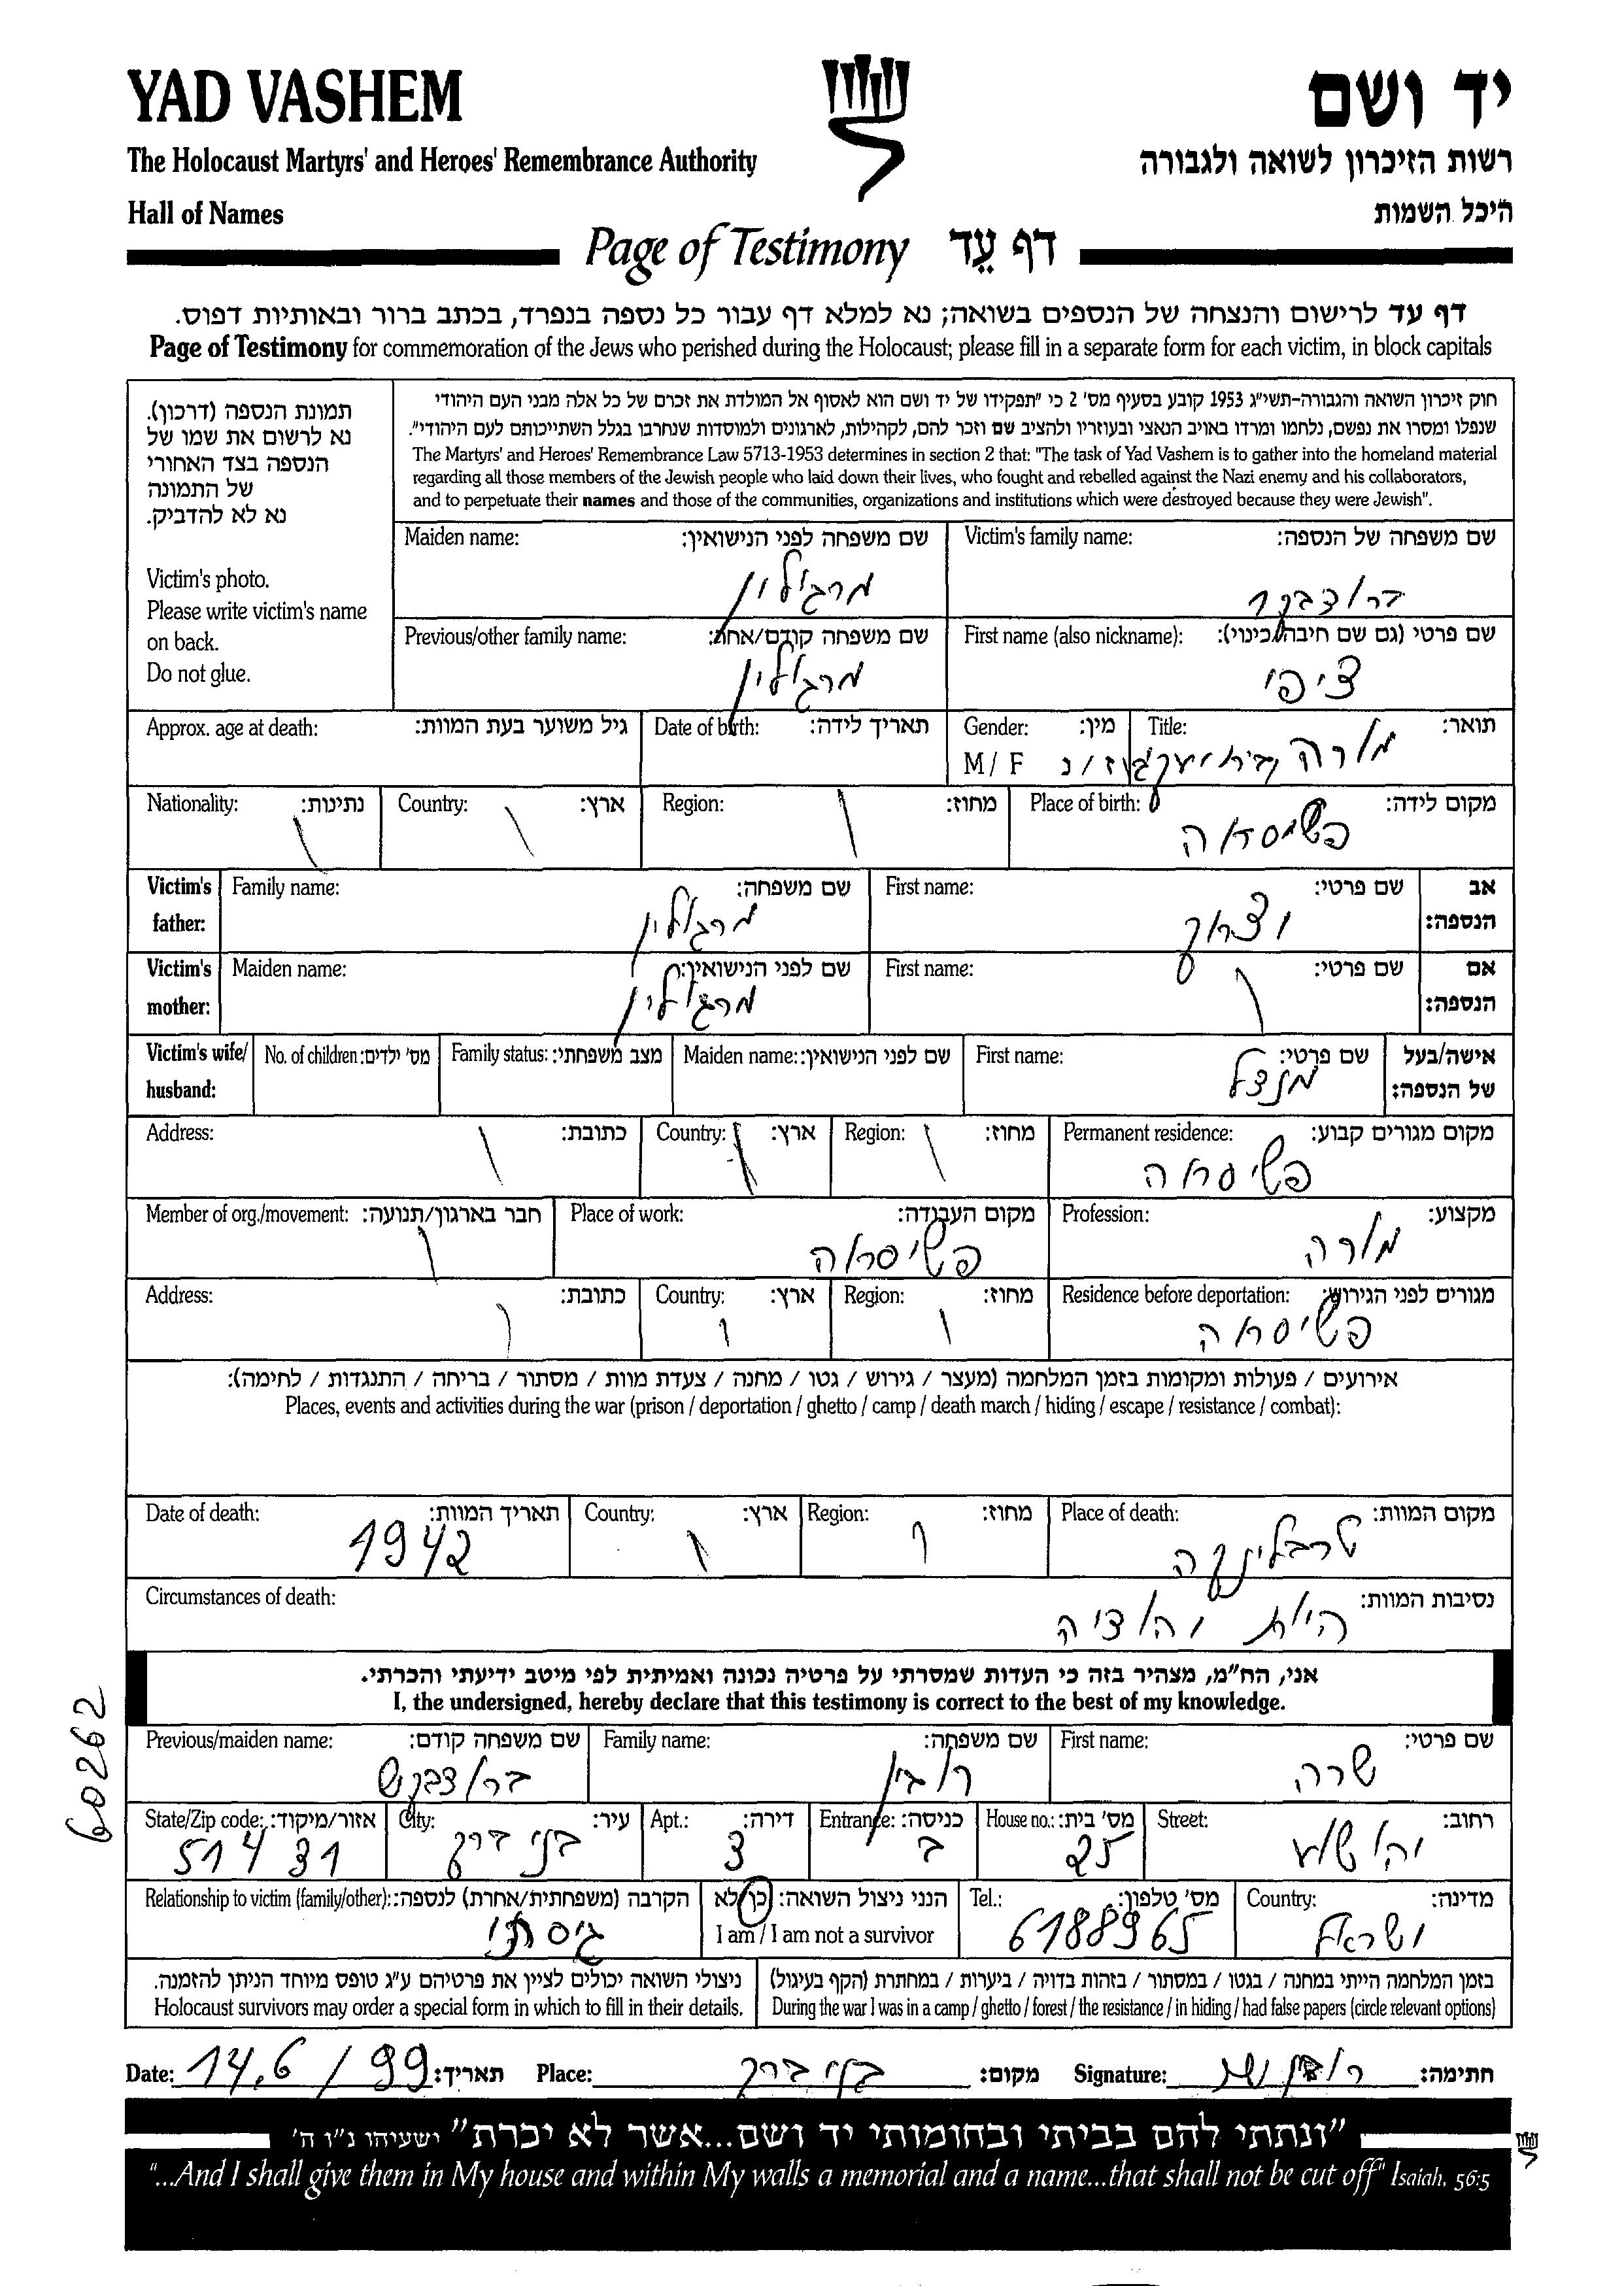 YAD VASHEM
יד ושם
The Holocaust Martyrs' and Heroes' Remembrance Authority
רשות הזיכרון לשואה ולגבורה
Hall of Names
היכל השמות
Page of Testimony דף עֵד
דף עד לרישום והנצחה של הנספים בשואה; נא למלא דף עבור כל נספה בנפרד, בכתב ברור ובאותיות דפוס.
Page of Testimony for commemoration of the Jews who perished during the Holocaust; please fill in a separate form for each victim, in block capitals
תמונת הנספה (דרכון).
נא לרשום את שמו של
הנספה בצד האחורי
של התמונה
נא לא להדביק.
Victim's photo.
Please write victim's name
on back.
Do not glue.
חוק זיכרון השואה והגבורה-תשי"ג 1953 קובע בסעיף מס' 2 כי "תפקידו של יד ושם הוא לאסוף אל המולדת את זכרם של כל אלה מבני העם היהודי
שנפלו ומסרו את נפשם, נלחמו ומרדו באויב הנאצי ובעוזריו ולהציב שם וזכר להם, לקהילות, לארגונים ולמוסדות שנחרבו בגלל השתייכותם לעם היהודי".
The Martyrs' and Heroes' Remembrance Law 5713-1953 determines in section 2 that: "The task of Yad Vashem is to gather into the homeland material
regarding all those members of the Jewish people who laid down their lives, who fought and rebelled against the Nazi enemy and his collaborators,
and to perpetuate their names and those of the communities, organizations and institutions which were destroyed because they were Jewish".
Victim's family name: שם משפחה של הנספה:
Maiden name: שם משפחה לפני הנישואין:
מרגולין
First name (also nickname): שם פרטי (גם שם חיבה/כינוי):
ציפי
Previous/other family name: שם משפחה קודם/אחר:
מרגולין
Title: תואר:
מורה בית יעקב
Gender: מין:
M / F ז / נ
Date of birth: תאריך לידה:
Approx. age at death: גיל משוער בעת המוות:
Place of birth: מקום לידה:
פשיסחה
Region: מחוז:
Country: ארץ:
Nationality: נתינות:
Victim's father: אב הנספה:
First name: שם פרטי:
יצחק
Family name: שם משפחה:
מרגולין
Victim's mother: אם הנספה:
First name: שם פרטי:
Maiden name: שם לפני הנישואין:
מרגולין
Victim's wife/husband: אישה/בעל של הנספה:
First name: שם פרטי:
מנדל
Maiden name: שם לפני הנישואין:
Family status: מצב משפחתי:
No. of children: מס' ילדים:
Permanent residence: מקום מגורים קבוע:
פשיסחה
Region: מחוז:
Country: ארץ:
Address: כתובת:
Profession: מקצוע:
מורה
Place of work: מקום העבודה:
פשיסחה
Member of org./movement: חבר בארגון/תנועה:
Residence before deportation: מגורים לפני הגירוש:
פשיסחה
Region: מחוז:
Country: ארץ:
Address: כתובת:
אירועים / פעולות ומקומות בזמן המלחמה (מעצר / גירוש / גטו / מחנה / צעדת מוות / מסתור / בריחה / התנגדות / לחימה):
Places, events and activities during the war (prison / deportation / ghetto / camp / death march / hiding / escape / resistance / combat):
Place of death: מקום המוות:
טרבלינקה
Region: מחוז:
Country: ארץ:
Date of death: תאריך המוות:
1942
Circumstances of death: נסיבות המוות:
היות יהודיה
אני, הח"מ, מצהיר בזה כי העדות שמסרתי על פרטיה נכונה ואמיתית לפי מיטב ידיעתי והכרתי.
I, the undersigned, hereby declare that this testimony is correct to the best of my knowledge.
60262
First name: שם פרטי:
שרה
Family name: שם משפחה:
רובין
Previous/maiden name: שם משפחה קודם:
Street: רחוב:
יהושע
House no.: מס' בית:
25
Entrance: כניסה:
ב
Apt.: דירה:
3
City: עיר:
בני ברק
State/Zip code: אזור/מיקוד:
51431
Country: מדינה:
ישראל
Tel.: מס' טלפון:
6188965
הנני ניצול השואה: כן/לא
I am / I am not a survivor
Relationship to victim (family/other): הקרבה (משפחתית/אחרת) לנספה:
גיסתי
בזמן המלחמה הייתי במחנה / בגטו / במסתור / בזהות בדויה / ביערות / במחתרת (הקף בעיגול)
During the war I was in a camp / ghetto / forest / the resistance / in hiding / had false papers (circle relevant options)
ניצולי השואה יכולים לציין את פרטיהם ע"ג טופס מיוחד הניתן להזמנה.
Holocaust survivors may order a special form in which to fill in their details.
Date: 14.6/99 תאריך: Place: בני ברק מקום: Signature: חתימה:
"ונתתי להם בביתי ובחומותי יד ושם...אשר לא יכרת" ישעיהו נ"ו ה'
"...And I shall give them in My house and within My walls a memorial and a name...that shall not be cut off" Isaiah, 56:5